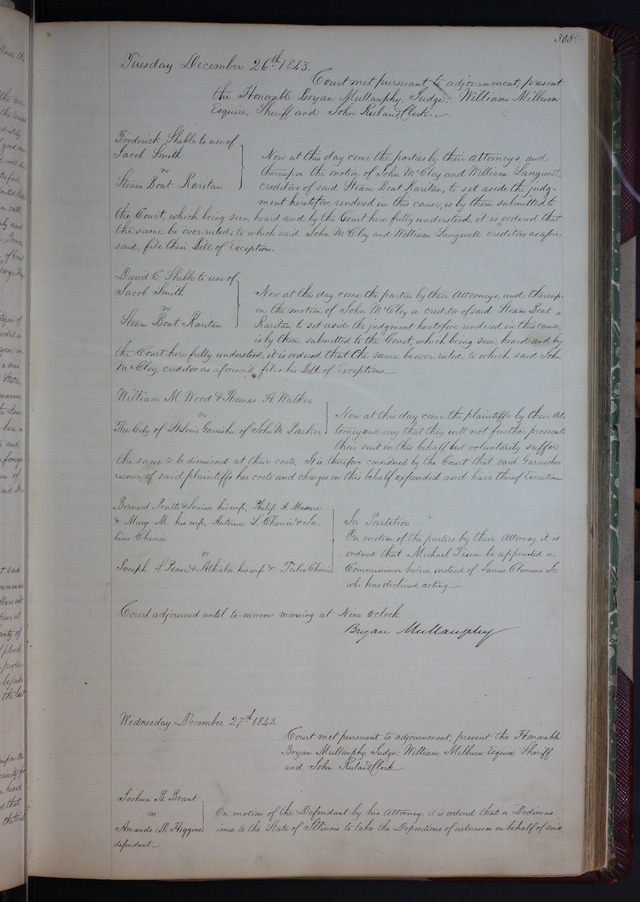 305.
Tuesday December 26th 1843.
Court met pursuant to adjournment, present
the Honorable Bryan Mullanphy Judge. William Milburn
Esquire, Sheriff and John Ruland Clerk
Frederick Shable to use of
Jacob Smith
vs
Steam Boat Raritan
Now at this day come the parties by their Attorneys and
thereupon the motion of John McCloy and William
creditors of said Steam Boat Raritan, to set aside the judg-
ment heretofore rendered in this cause, is by them submitted to
the Court, which being seen, heard and by the Court here fully understood, it is ordered that
the same be over ruled, to which said John McCloy and William creditors as afore
said, file their Bill of Exception.
David C. Shable to use of
Jacob Smith
vs
Steam Boat Raritan
Now at this day come the parties by their Attorneys, and thereup-
on the motion of John McCloy a creditor of said Steam Boat
Raritan to set aside the judgment heretofore rendered in this cause,
is by them submitted to the Court, which being seen, heard and by
the Court here fully understood, it is ordered that the same be over ruled, to which said John
McCloy creditor as aforesaid, files his Bill of Exceptions
William M Wood & Thomas A Walker
vs
The City of St Louis Garnishee of John M. Parker
Now at this day come the plaintiffs by their At-
torney and say that they will not further prosecute
their suit in this behalf but voluntarily suffer
the same to be dismissed at their costs. It is therefore considered by the Court that said Garnishee
recover of said plaintiffs her costs and charges in this behalf expended and have thereof Execution
Bernard Pratte & Louisa his wife, Philip A
& Mary M. his wife, Antoine L Chenie & Ju-
lius Chenie
vs
Joseph L his wife & Chenie
In Partition
On motion of the parties by their Attorney it is
ordered that Michael Tesson be appointed a
Commissioner herein instead of James Clemens Jr
who has declined acting
Court adjourned until to morrow morning at Nine O'clock.
Bryan Mullanphy
Wednesday December 27th 1843.
Court met pursuant to adjournment, present the Honorable
Bryan Mullanphy Judge, William Milburn Esquire Sheriff
and John Ruland Clerk
Joshua B. Brant
vs
Amanda D. Higgins
defendant
On motion of the Defendant by his Attorney, it is ordered that a Dedimus
issue to the State of Illinois to take the Depositions of witnesses on behalf of said